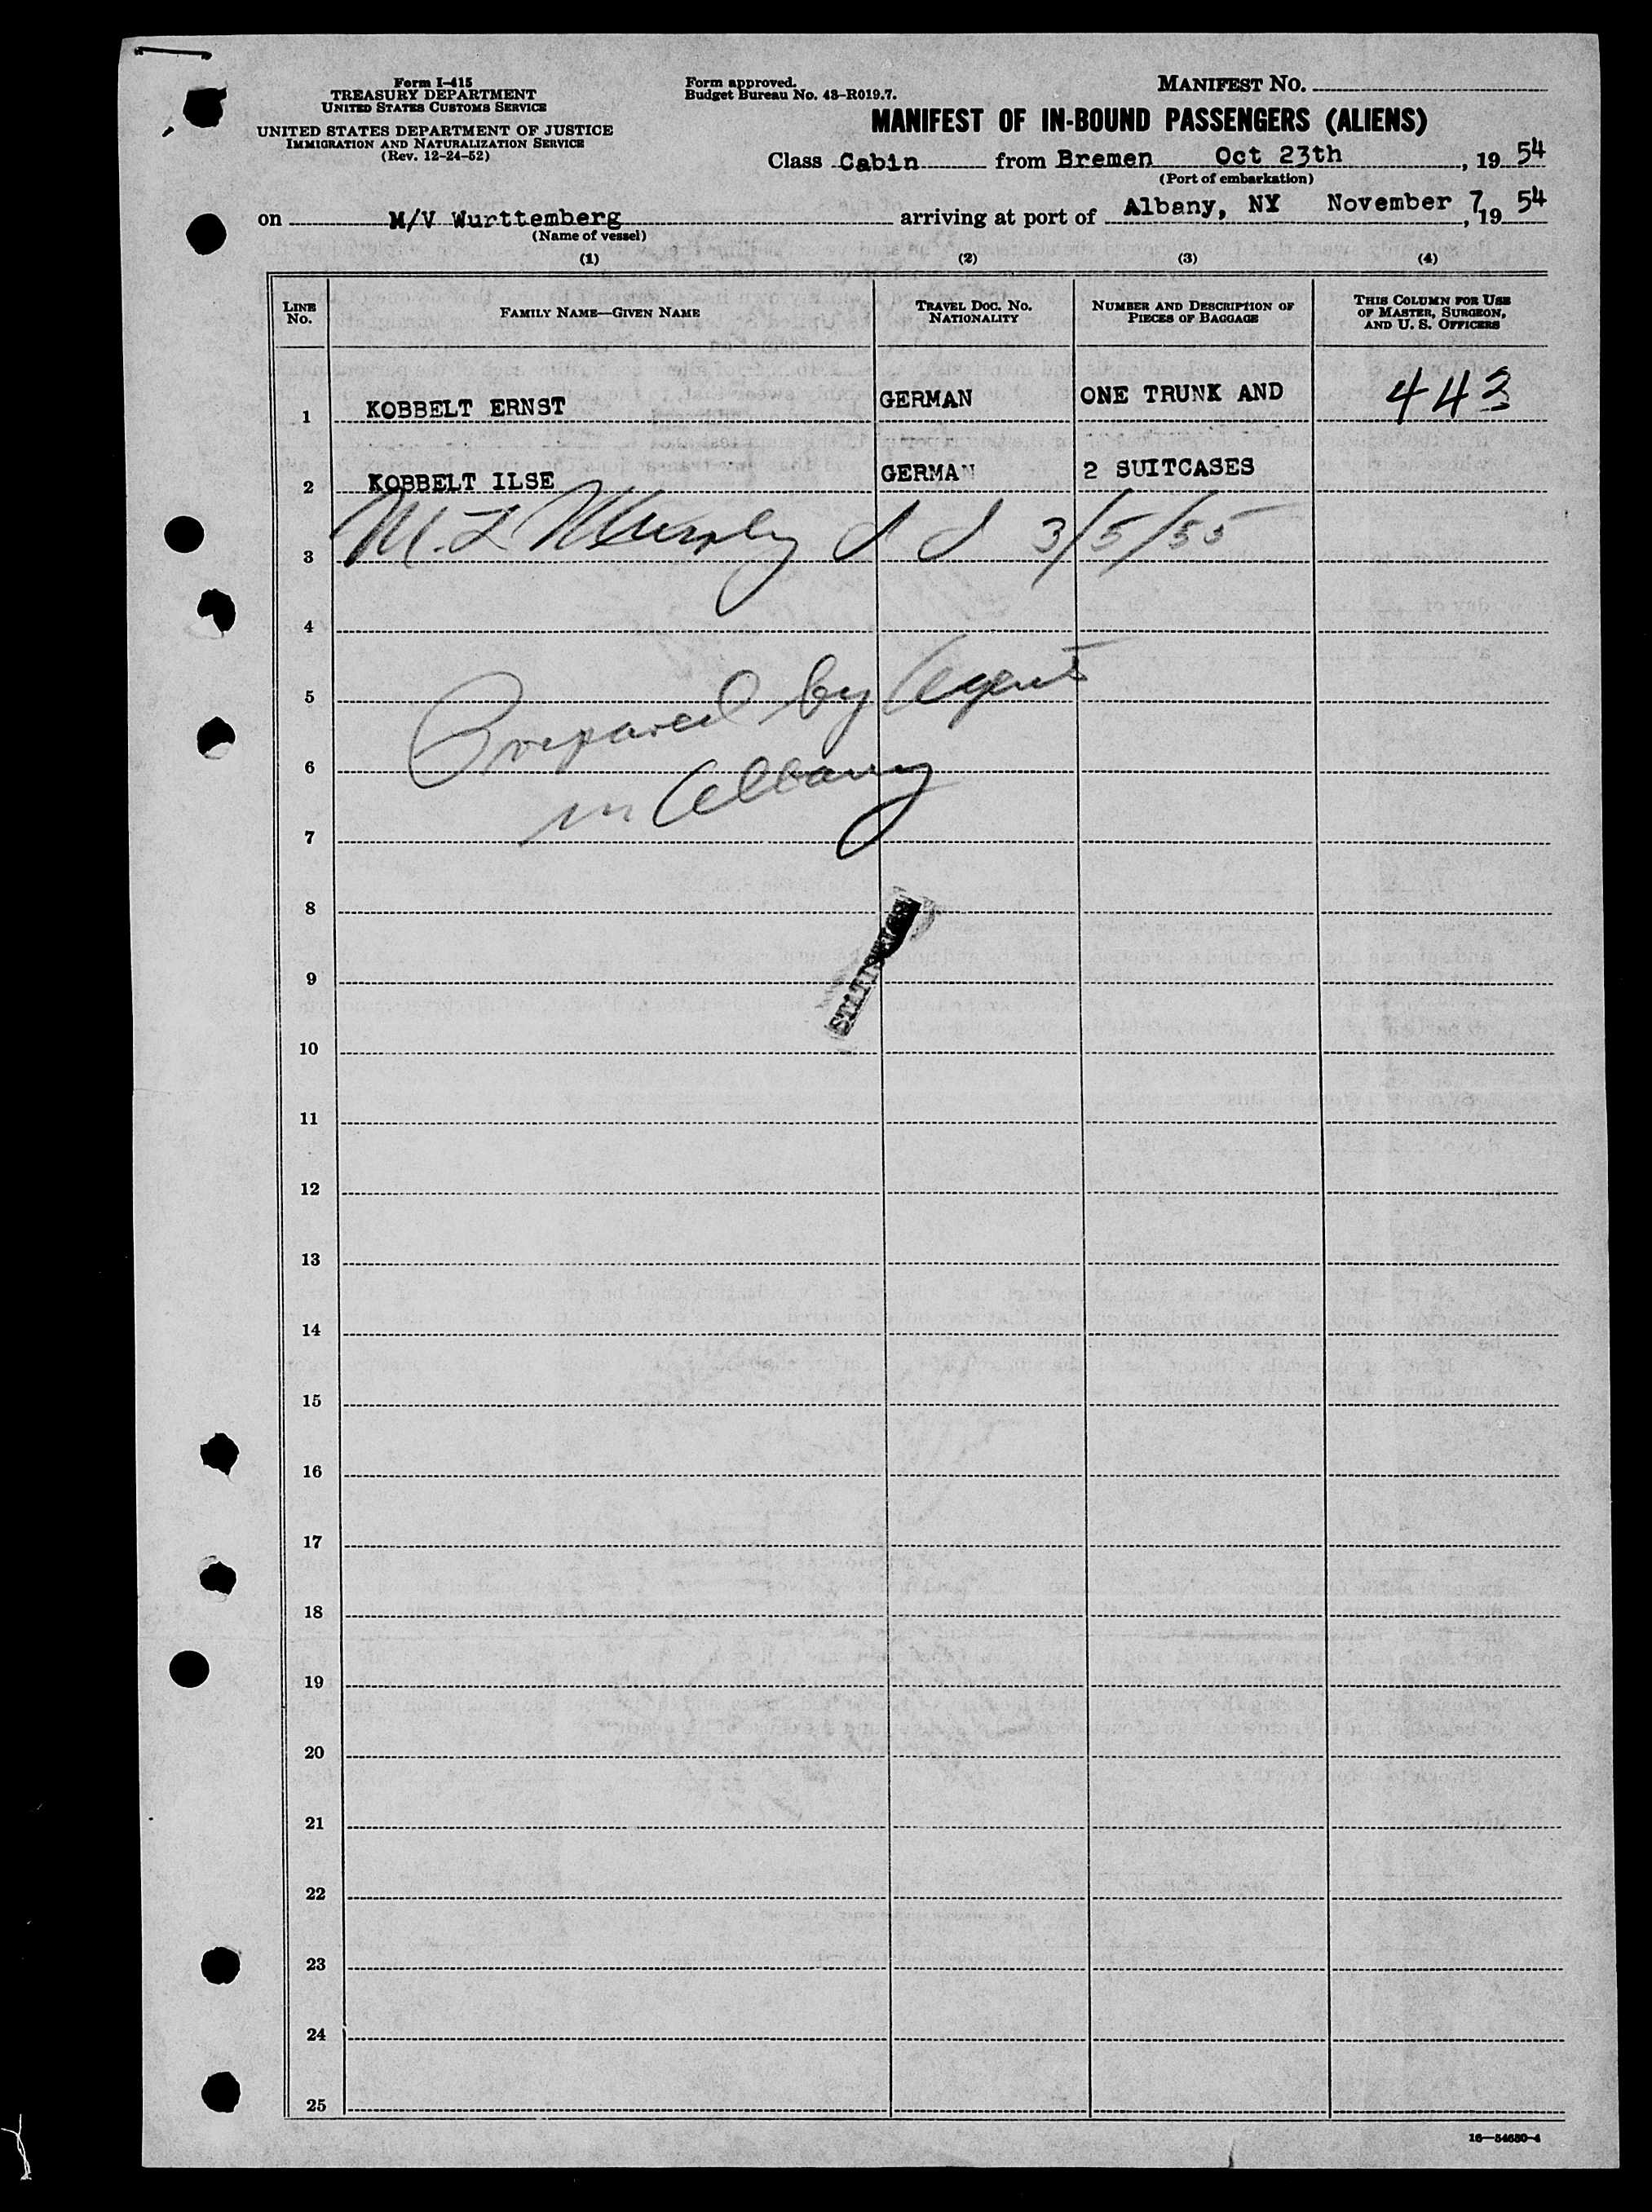 Form I-415
TREASURY DEPARTMENT
UNITED STATES CUSTOMS SERVICE
UNITED STATES DEPARTMENT OF JUSTICE
IMMIGRATION AND NATURALIZATION SERVICE
(Rev. 12-24-52)
Form approved.
Budget Bureau No. 43-R019.7.
MANIFEST NO.
MANIFEST OF IN-BOUND PASSENGERS (ALIENS)
Class Cabin from Bremen Oct 23th, 19 54
(Port of embarkation)
on M/V Wurttemberg arriving at port of Albany, NY November 7, 19 54
(Name of vessel)
(1) (2) (3) (4)
LINE NO. FAMILY NAME—GIVEN NAME TRAVEL DOC. NO. NATIONALITY NUMBER AND DESCRIPTION OF PIECES OF BAGGAGE THIS COLUMN FOR USE OF MASTER, SURGEON, AND U. S. OFFICERS
1 KOBBELT ERNST GERMAN ONE TRUNK AND 443
2 KOBBELT ILSE GERMAN 2 SUITCASES
3 M. L Murphy d d 3/5/55
4
5 Prepared by Agents
6 in Albany
7
8
9
10
11
12
13
14
15
16
17
18
19
20
21
22
23
24
25
16—54630-4